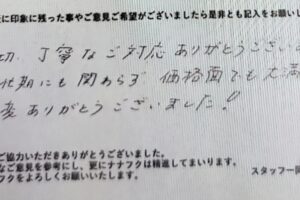 に印象に残った事やご意見ご希望がございましたら是非とも記入をお願い
切、丁寧なご対応ありがとうござい
忙期にも関わらず 価格面でも大満
変ありがとうございました！
ご協力いただきありがとうございました。
なご意見を参考にし、更にナナフクは精進してまいります。
フクをよろしくお願いいたします。
スタッフ一同